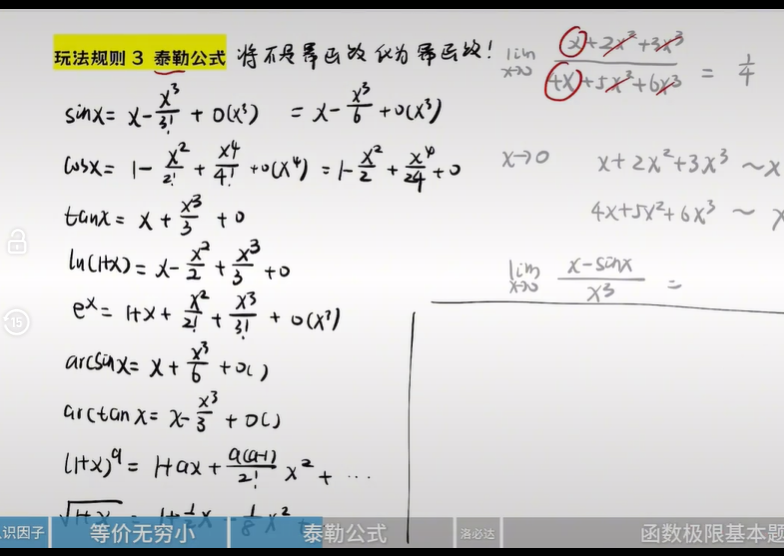 玩法规则 3 泰勒公式 将不是幂函数化为幂函数!
sinx = x - x³/3! + o(x³) = x - x³/6 + o(x³)
cosx = 1 - x²/2! + x⁴/4! + o(x⁴) = 1 - x²/2 + x⁴/24 + o
tanx = x + x³/3 + o
ln(1+x) = x - x²/2 + x³/3 + o
eˣ = 1 + x + x²/2! + x³/3! + o(x³)
arcsinx = x + x³/6 + o( )
arctanx = x - x³/3 + o( )
(1+x)ᵃ = 1 + ax + a(a-1)/2! x² + ⋯
√1+x = 1 + 1/2 x - 1/8 x² +
lim x→0 (x + 2x² + 3x³)/(4x + 5x² + 6x³) = 1/4
x→0 x + 2x² + 3x³ ~ x
4x + 5x² + 6x³ ~
lim x→0 (x - sinx)/x³ =
15
识因子 等价无穷小 泰勒公式 洛必达 函数极限基本题